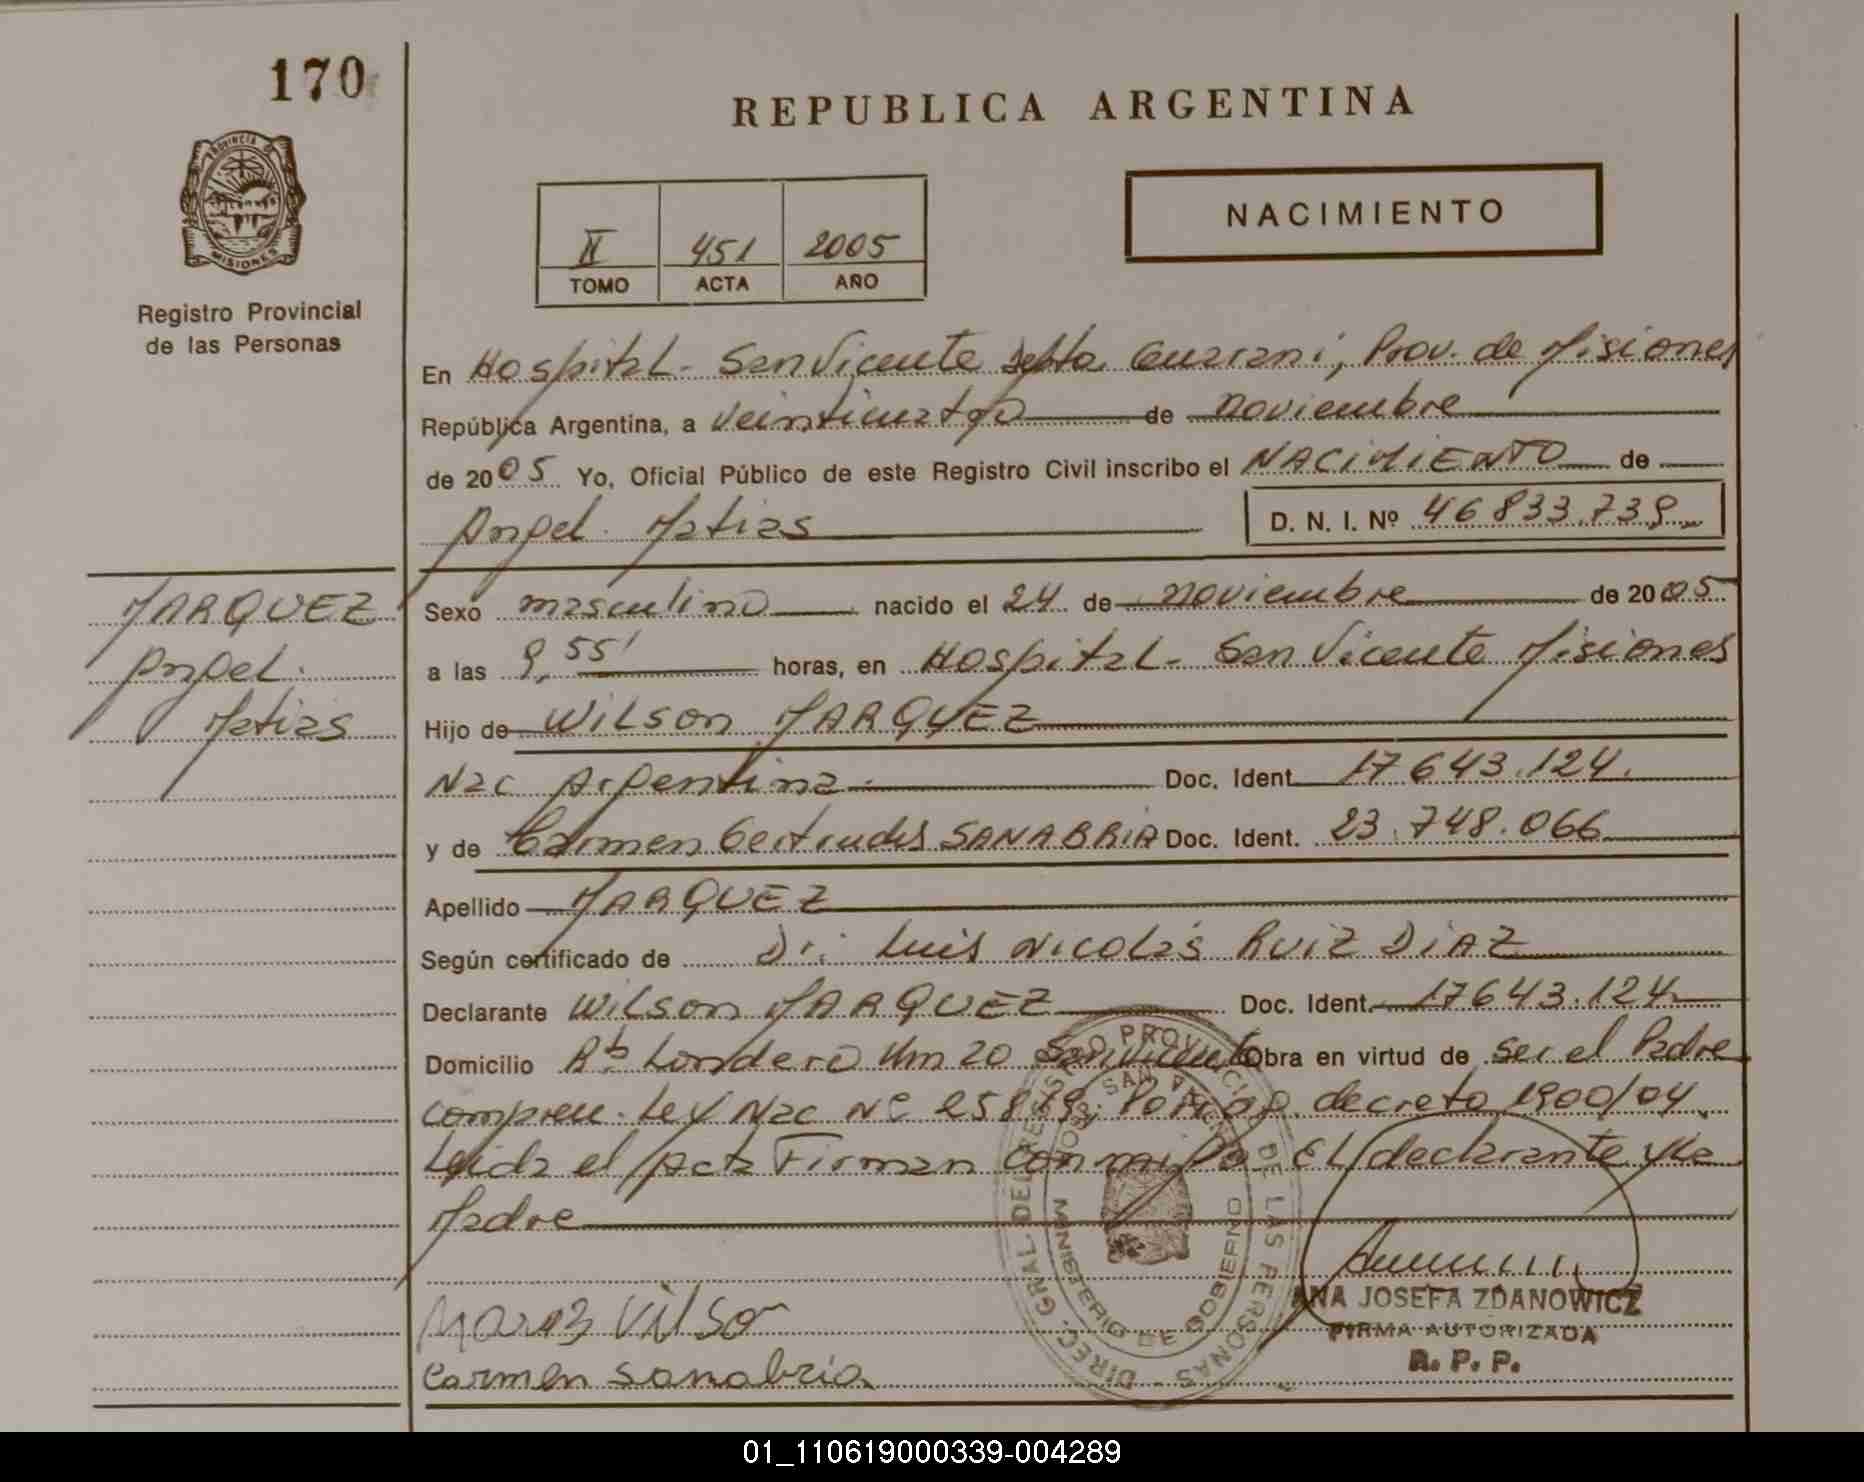 170
PROVINCIA DE
MISIONES
Registro Provincial
de las Personas
REPUBLICA ARGENTINA
II 451 2005
TOMO ACTA AÑO
NACIMIENTO
En Hospital - San Vicente Depto. Guarani, Prov. de Misiones
República Argentina, a veinticuatro de noviembre
de 2005 Yo, Oficial Público de este Registro Civil inscribo el NACIMIENTO de
Angel Matias D. N. I. Nº 46833.739
MARQUEZ
Angel
Matias
Sexo masculino nacido el 24 de noviembre de 2005
a las 9,55' horas, en Hospital - San Vicente Misiones
Hijo de Wilson MARQUEZ
Nac Argentina Doc. Ident. 17643.124.
y de Carmen Gertrudis SANABRIA Doc. Ident. 23.748.066
Apellido MARQUEZ
Según certificado de Dr. Luis Nicolás RUIZ DIAZ
Declarante Wilson MARQUEZ Doc. Ident. 17643.124
Domicilio Londero Km 20 San Vicente Obra en virtud de ser el Padre
Ley Nac Nº decreto 1900/04
Leida el Acta Firman conmigo El declarante y la
Madre
DIREC. GRAL. DEL REGISTRO PROVINCIAL DE LAS PERSONAS
SAN VICENTE
MINISTERIO DE GOBIERNO
Vilson
Carmen Sanabria
ANA JOSEFA ZDANOWICZ
FIRMA AUTORIZADA
R. P. P.
01_110619000339-004289